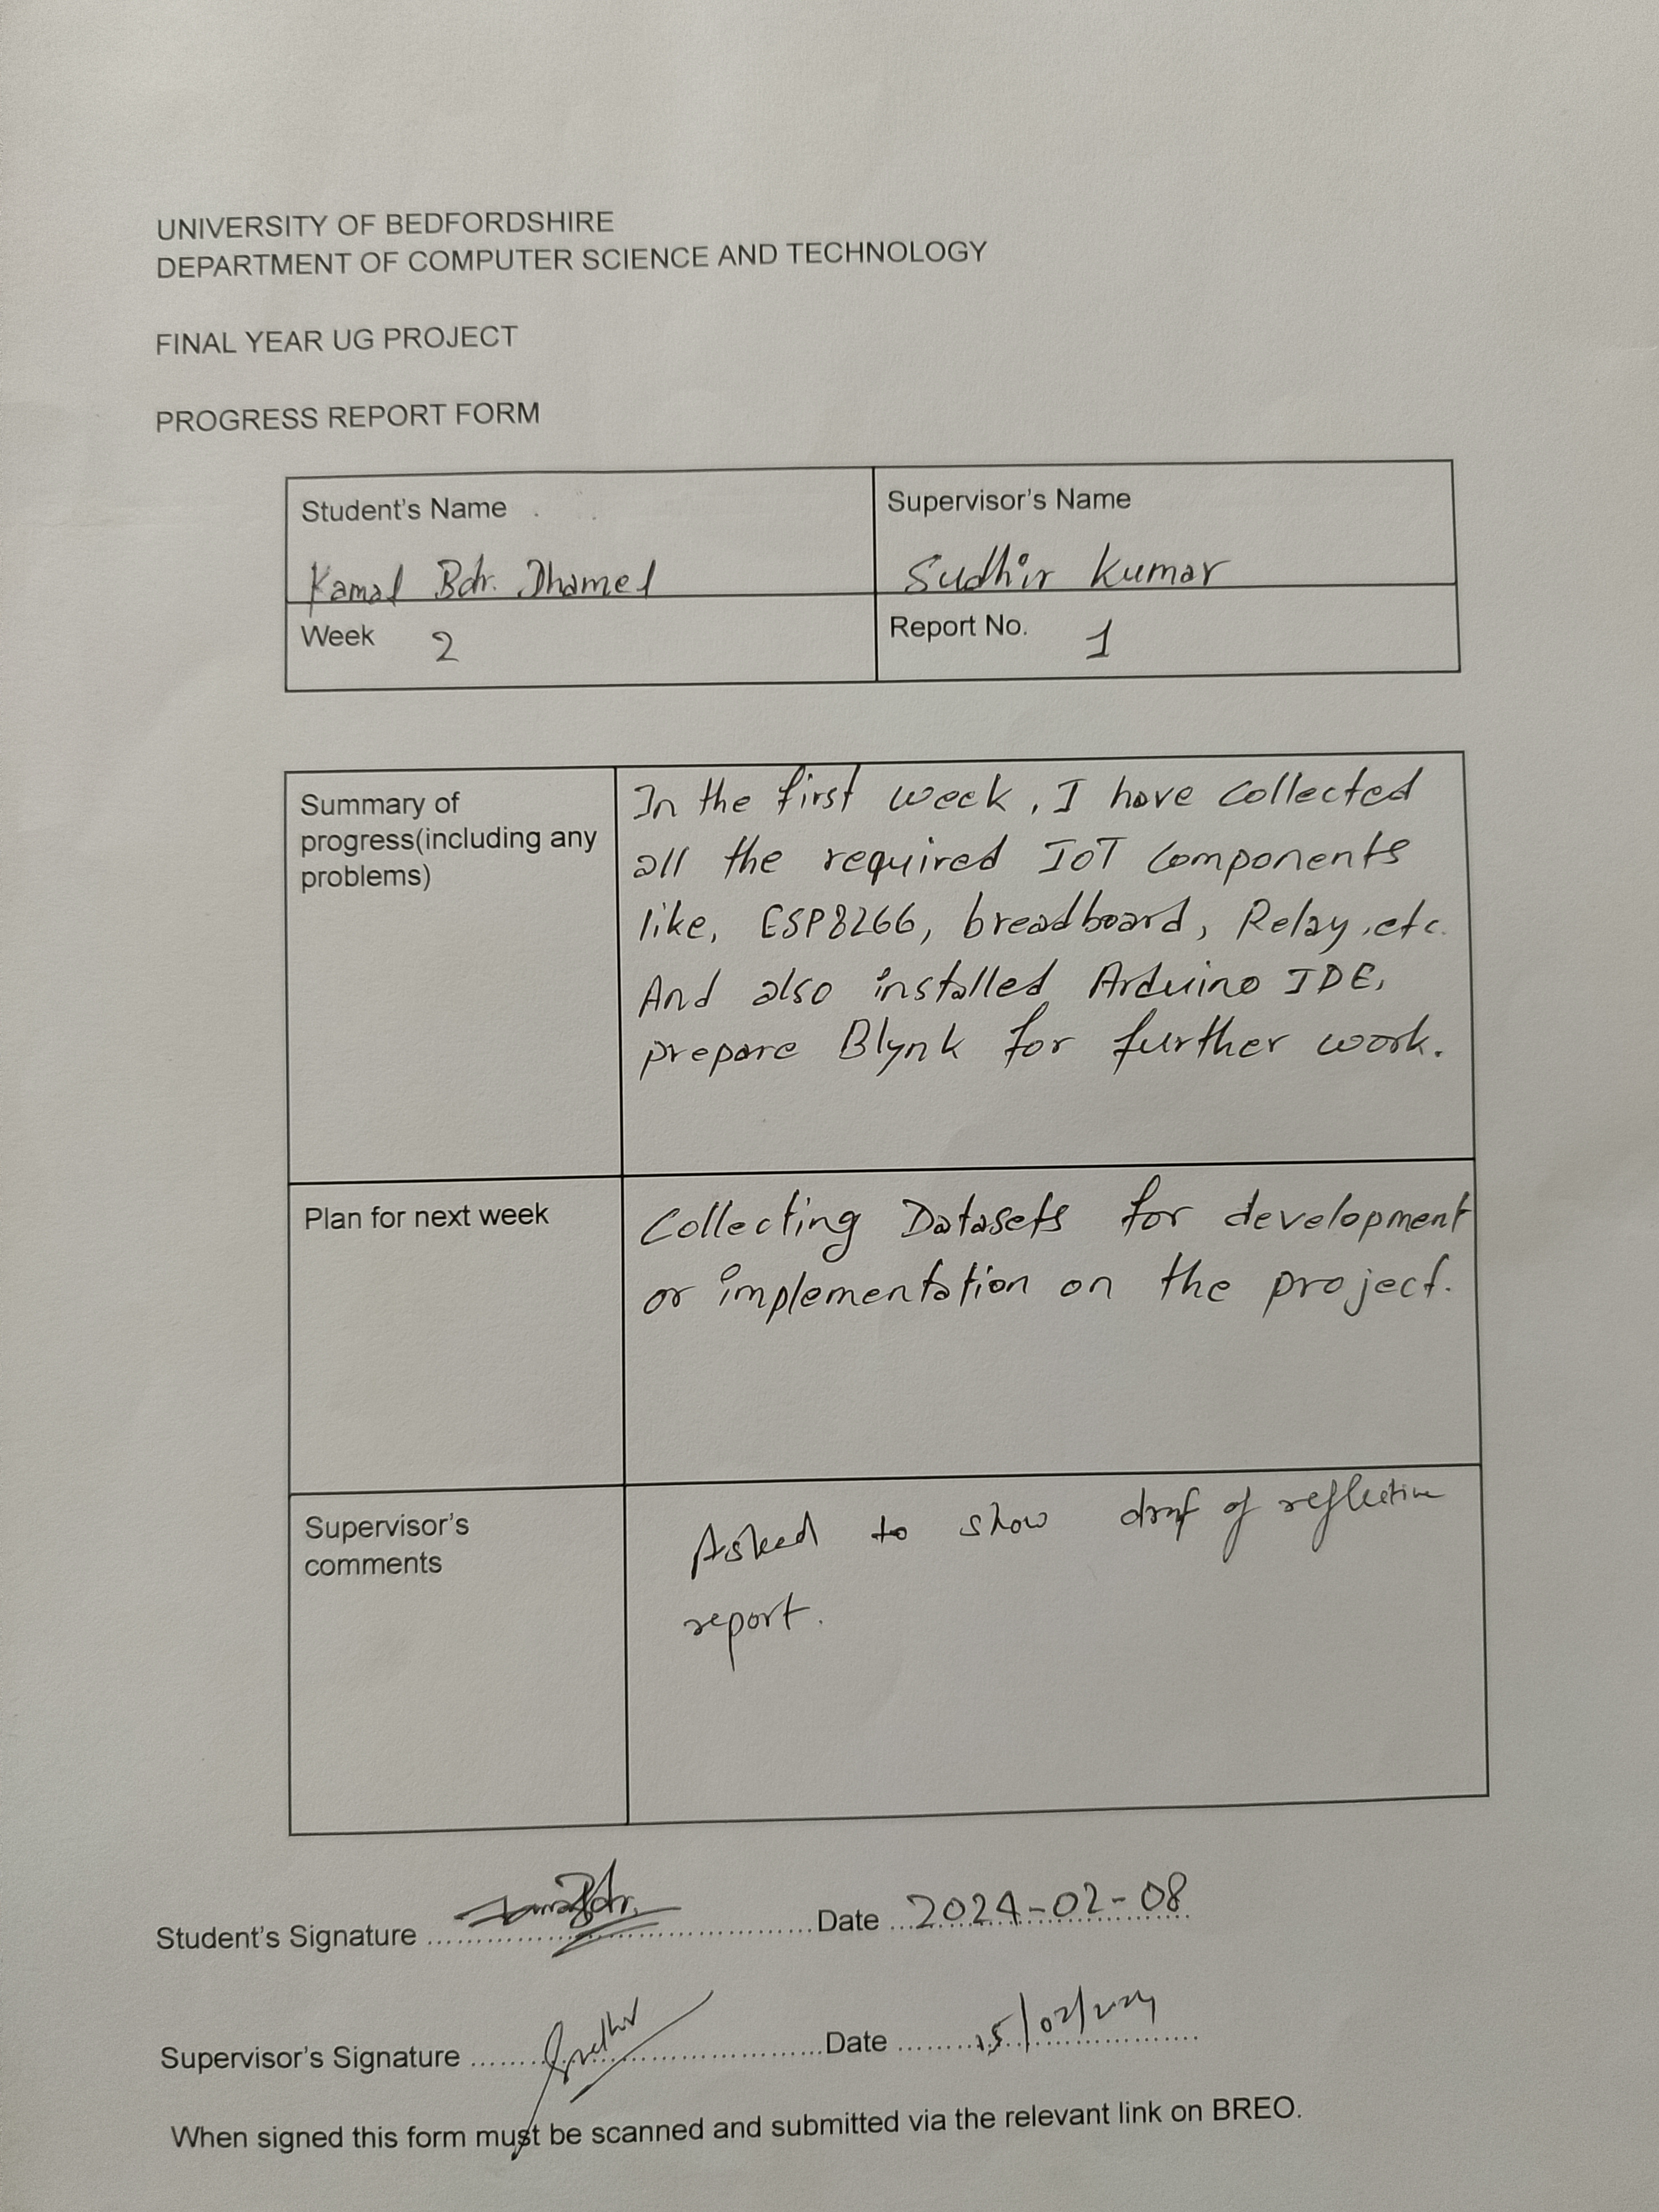 UNIVERSITY OF BEDFORDSHIRE
DEPARTMENT OF COMPUTER SCIENCE AND TECHNOLOGY
FINAL YEAR UG PROJECT
PROGRESS REPORT FORM
Student's Name
Kamal Bdr. Dhamel
Supervisor's Name
Sudhir Kumar
Week 2
Report No. 1
Summary of
progress(including any
problems)
In the first week, I have collected
all the required IoT components
like, ESP8266, breadboard, Relay, etc.
And also installed Arduino IDE,
prepare Blynk for further work.
Plan for next week
Collecting Datasets for development
or implementation on the project.
Supervisor's
comments
Asked to show draf of reflective
report.
Student's Signature Date 2024-02-08
Supervisor's Signature Sudhir Date 15/02/2024
When signed this form must be scanned and submitted via the relevant link on BREO.